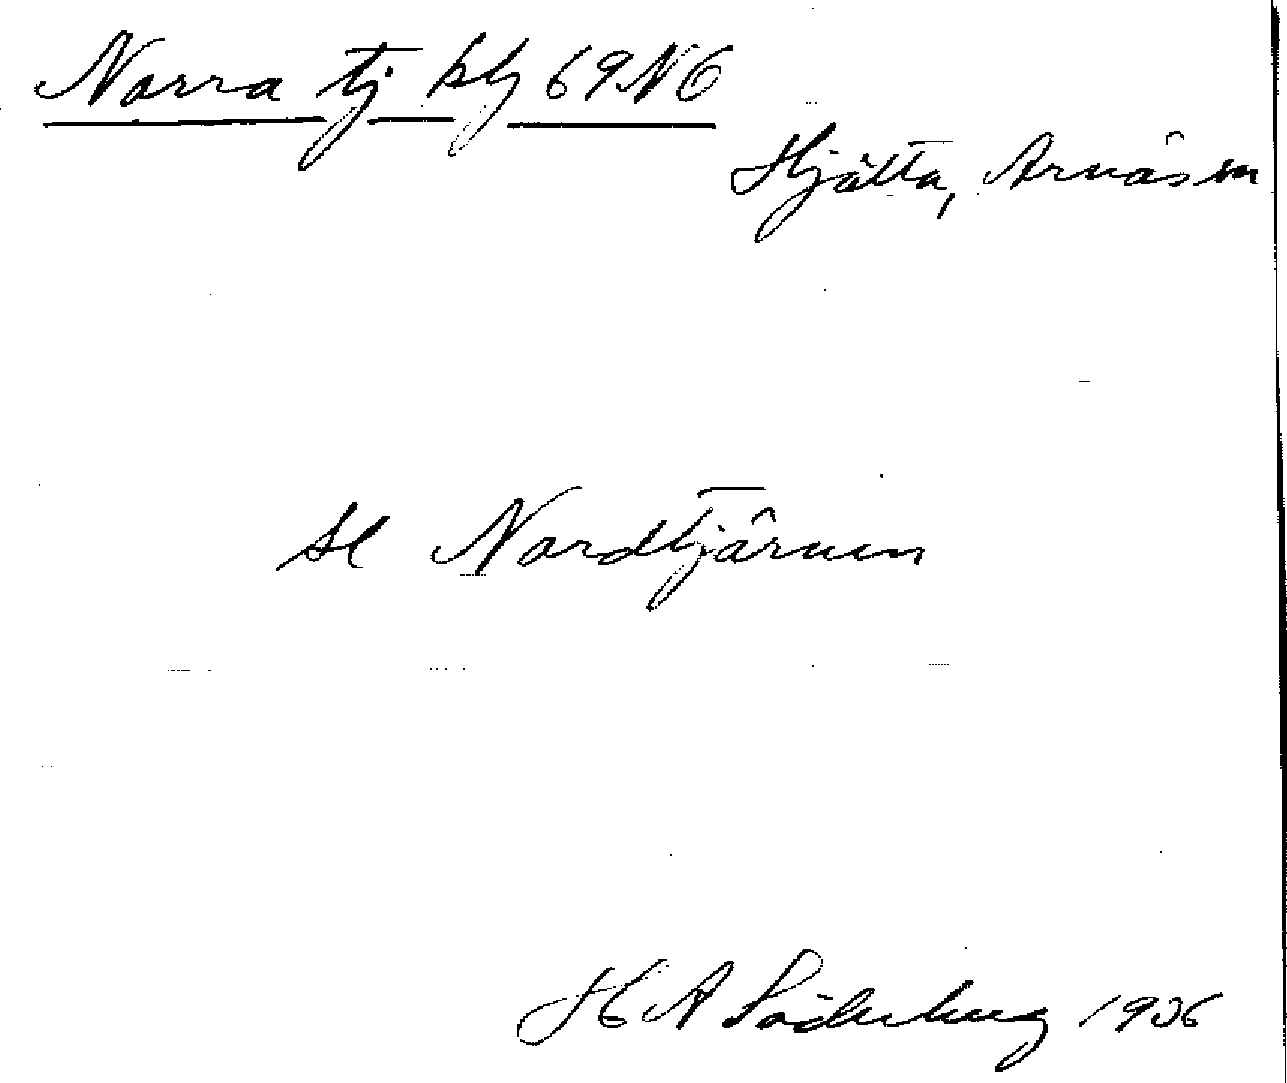 Norra tj kly 69 N6
Hjälta, Arnäs sn
se Nordtjärnen
H A Söderberg 1936